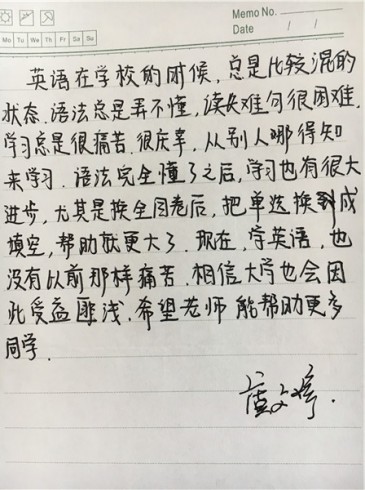 Memo No.
Mo Tu We Th Fr Sa Su
Date / /
英语在学校的时候,总是比较混的
状态.语法总是弄不懂,读长难句很困难.
学习总是很痛苦.很庆幸,从别人哪得知
来学习.语法完全懂了之后,学习也有很大
进步,尤其是换全国卷后,把单选换到成
填空,帮助就更大了.现在,学英语,也
没有以前那样痛苦.相信大学也会因
此受益匪浅.希望老师能帮助更多
同学.